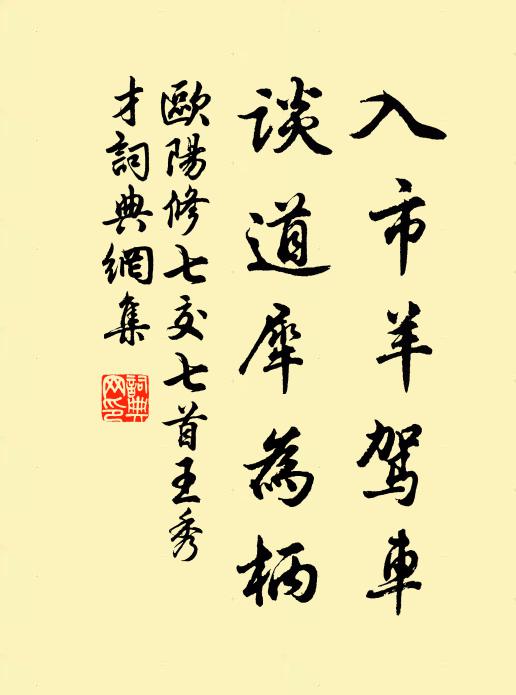 入市羊駕車
談道犀為柄
歐陽修七交七首王秀
才詞典網集
詞典
网印